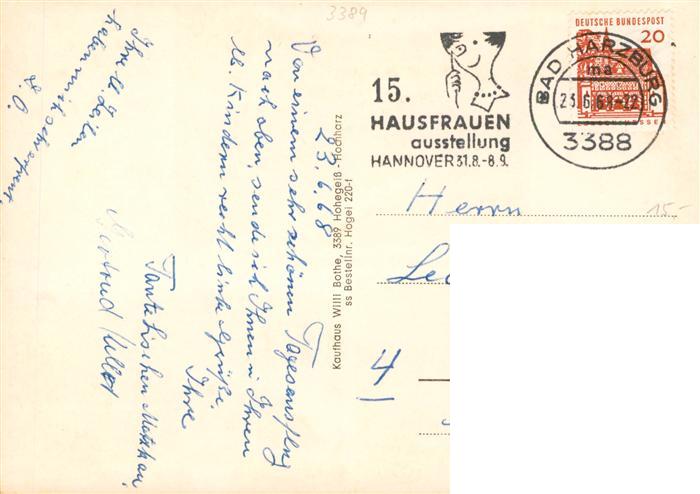 3389
23.6.68
Von einem sehr schönen Tagesausflug
nach oben, sende ich Ihnen u. Ihren
lb. Kindern recht liebe Grüße
Ihre
Tante
Gertrud
Ihre lb. Zeilen
haben mich sehr erfreut.
D. O.
Kaufhaus Willi Bothe, 3389 Hohegeiß-Hochharz
ss Bestellnr. Hogei 220-f
15.
HAUSFRAUEN
ausstellung
HANNOVER 31.8.-8.9.
BAD HARZBURG
ma
23.6.68-22
3388
DEUTSCHE BUNDESPOST
20
15.-
Herrn
Leo
4